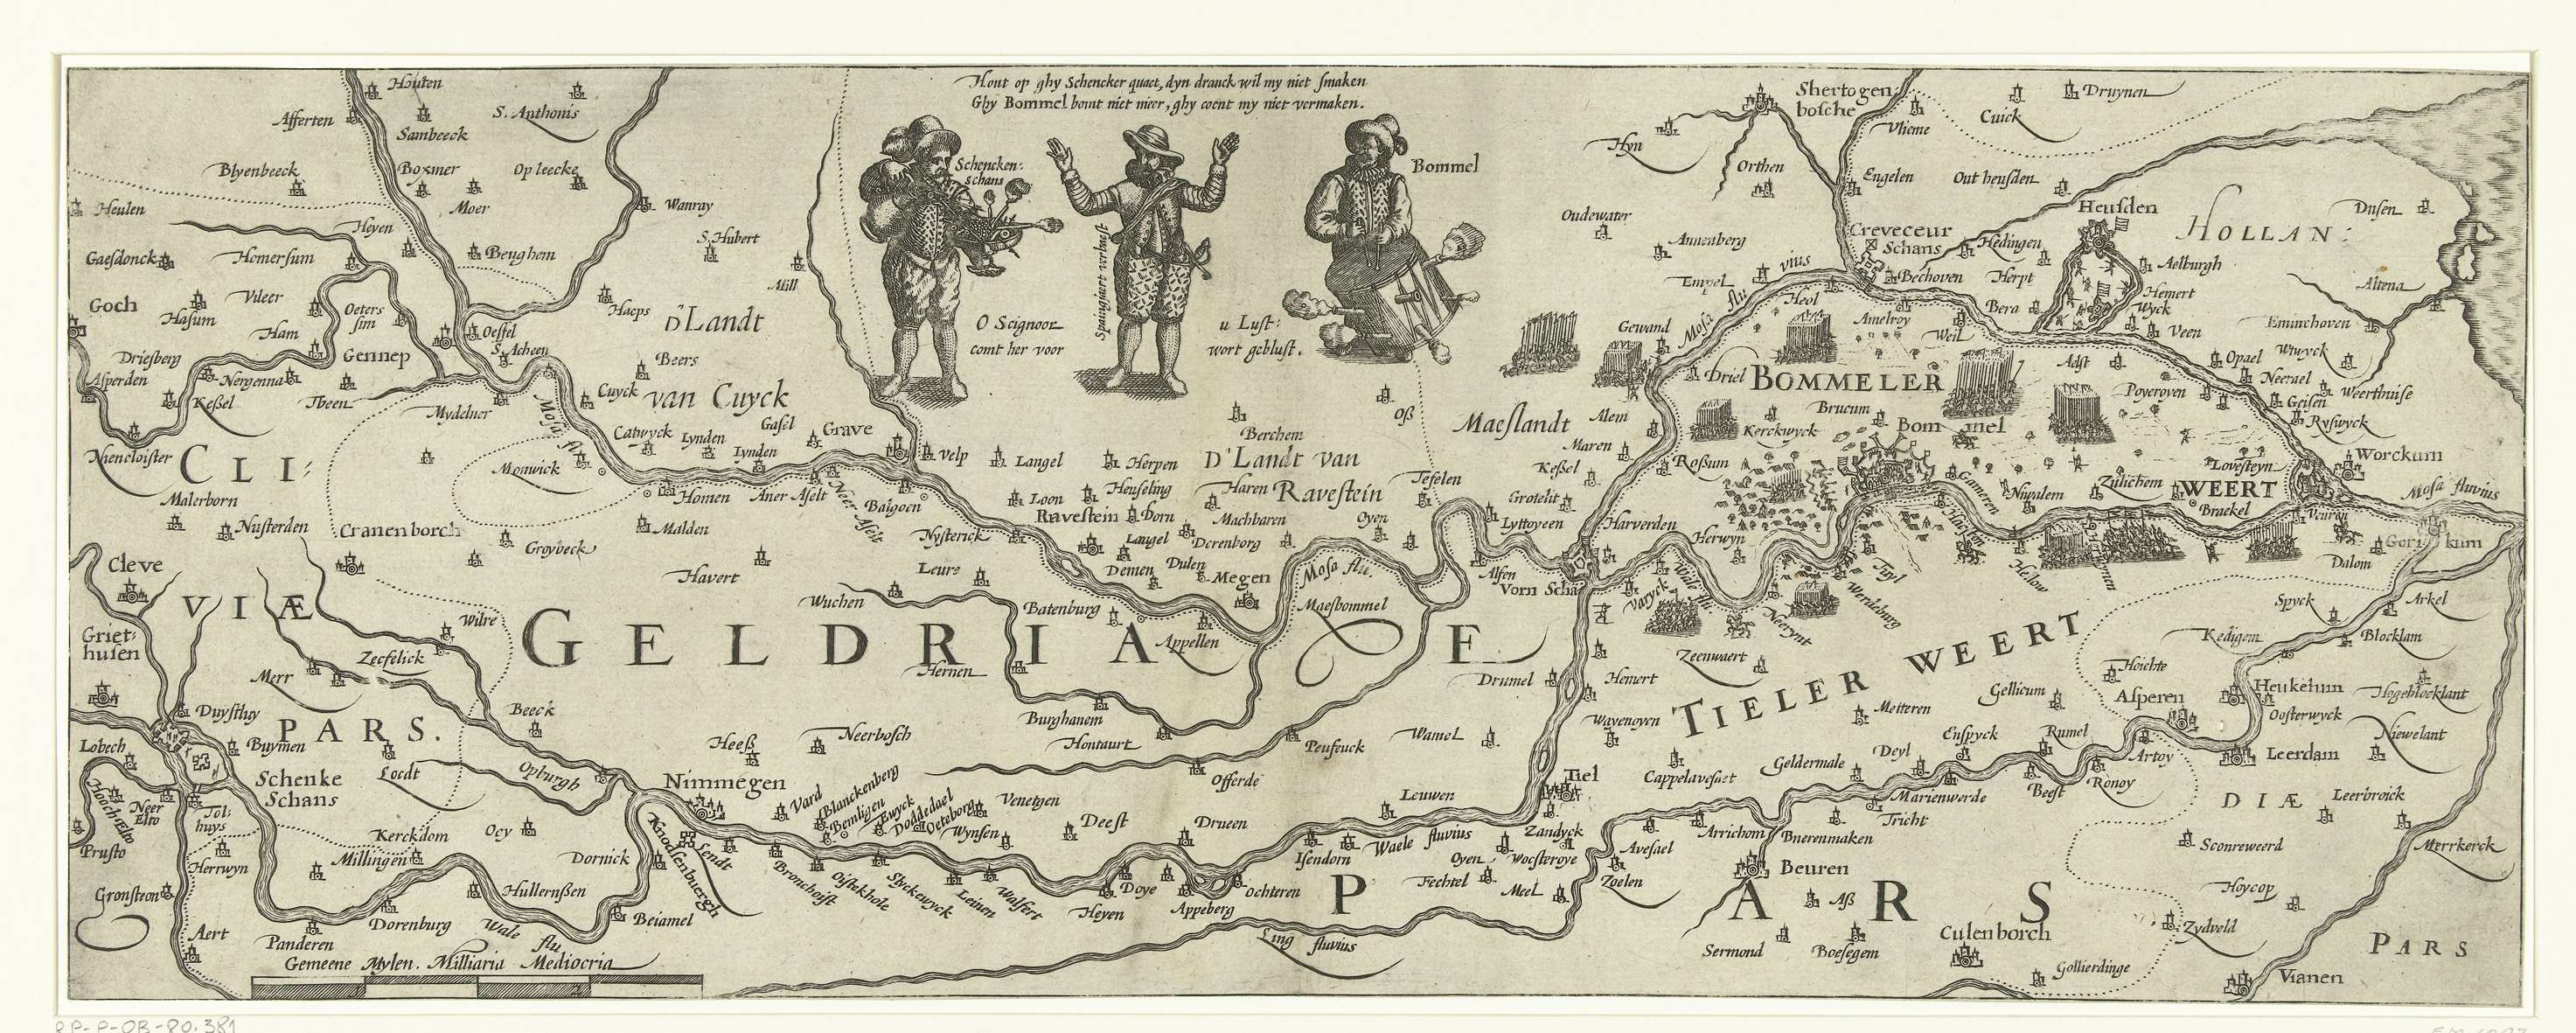 Hout op ghy Schencker quaet, dyn dranck wil my niet smaken
Ghy Bommel bomt niet meer, ghy coent my niet vermaken.
Schencken:
schans
Bommel
Spaingiaert verbaest
O Seignoor
comt her voor
u Lust:
wort geblust.
Houten
Afferten
Sambeeck
S. Anthonis
Blyenbeeck
Boxmer
Opleecke
Moer
Wanray
Heulen
Heyen
S. Hubert
Gaesdonck
Homersum
Beughem
Mill
Goch
Vileer
Hasum
Ham
Oeters
sim
Haeps
D'Landt
van Cuyck
Oeffel
S. Acheen
Gennep
Beers
Driesberg
Asperden
Nergenna
Keßel
Tbeen
Mydelner
Cuyck
Mosa flu.
Catwyck
Lynden
Lynden
Gasel
Grave
Velp
Niencloister
CLI:
VIÆ
PARS.
Monwick
Malerborn
Nusterden
Cranenborch
Homen
Aner Aselt
Neer Aselt
Balgoen
Malden
Groybeck
Havert
Langel
Herpen
Berchem
Loon
Heuseling
Haren
D'Landt van
Ravestein
Ravestein
Dorn
Machbaren
Langel
Derenborg
Nysterick
Demen
Dulen
Megen
Oyen
Tefelen
Oß
Maeslandt
Leure
Wuchen
Batenburg
Appellen
Mosa flu.
Maesbommel
Hernen
Burghanem
Hontaurt
Offerde
Peufeuck
Wamel
Drumel
GELDRIAE
PARS
Cleve
Griet:
husen
Wilre
Zecfelick
Merr
Duysthuy
Buymen
Lobech
Schenke
Schans
Locdt
Beeck
Opburgh
Heeß
Neerbosch
Nimmegen
Hooch Elto
Neer
Elto
Tol:
huys
Prusto
Herrwyn
Gronstron
Aert
Kerckdom
Ocy
Millingen
Dornick
Hullernßen
Dorenburg
Panderen
Wale flu
Beiamel
Knodsenburgh
Lendt
Gemeene Mylen. Milliaria Mediocria
Vard
Blanckenberg
Beinligen
Euyck
Doddedael
Oeteborg
Venetgen
Wynsen
Deest
Drueen
Bronchoist
Oisteckhole
Slyckewyck
Leinen
Walfert
Heyen
Doye
Appeberg
Ochteren
Isendorn
Leuwen
Waele fluvius
Ling fluvius
Tiel
Zandyck
Oyen
Wocsteroye
Fechtel
Meel
Avesael
Zoelen
Shertogen
bosche
Druynen
Cuick
Vlieme
Hyn
Orthen
Engelen
Out heusden
Oudewater
Annenberg
Empel
Creveceur
Schans
Bechoven
Hedingen
Herpt
Heusden
HOLLAN:
Dusen
Aelburgh
Hemert
Wyck
Veen
Altena
Eminchoven
Gewand
Mosa fluvius
Heol
Amelroy
Weil
Bera
Adst
Opael
Wruyck
Neerael
Weerthuise
Geisen
Ryswyck
Poyeroyen
Driel
BOMMELER
WEERT
Brucum
Kerckwyck
Bommel
Alem
Maren
Keßel
Roßum
Grotelit
Lyttoyeen
Harverden
Herwyn
Alfen
Vorn Scha
Varyck
Wali flu
Neerynt
Werdeburg
Tuyl
Gameren
Niwalem
Zulichem
Braekel
Lovesteyn
Worckum
Mosa fluvius
Veuren
Gorickum
Dalom
Hellow
Spyck
Arkel
Kedigem
Blocklam
Hoichte
Zeenwaert
Hemert
Wavenoyen
TIELER WEERT
Meiteren
Gellicum
Asperen
Heukelum
Hogeblocklant
Oosterwyck
Niewelant
Leerdam
Artoy
Ronoy
Rumel
Beest
Enspyck
Deyl
Geldermale
Cappelavesaet
Marienwerde
Tricht
Arrichom
Bnerenmaken
Beuren
Aß
Sermond
Boesegem
Culenborch
Gollierdinge
DIÆ
Leerbroick
Sconreweerd
Merrkerck
Hoycop
Zydveld
PARS
Vianen
RP-P-OB-80.381